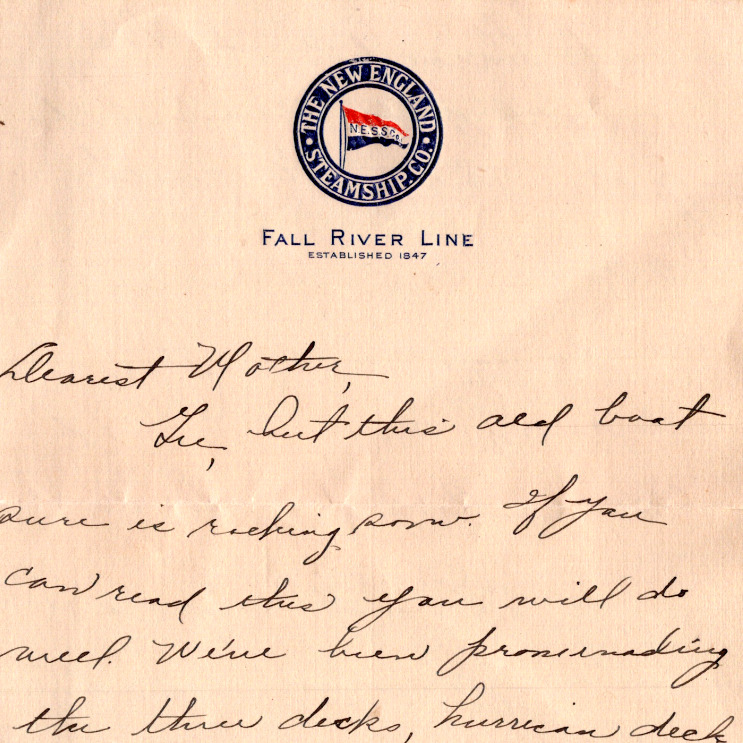 THE NEW ENGLAND
STEAMSHIP. CO.
N.E.S.S.Co.
FALL RIVER LINE
ESTABLISHED 1847
Dearest Mother,
Gee, but this old boat
sure is rocking some. If you
can read this you will do
well. We've been promenading
the three decks, hurrican deck